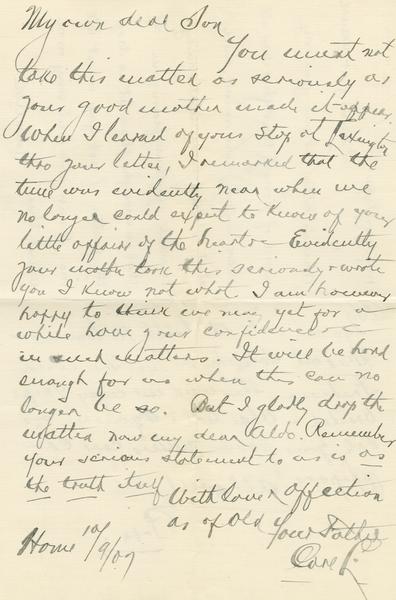 My own dear Son
You must not
take this matter as seriously as
your good mother made it appear.
When I learned of your stop at Lexington
thro your letter, I remarked that the
time was evidently near when we
no longer could expect to know of your
little affairs of the heart - Evidently
your mother took this seriously & wrote
you I know not what. I am however
happy to think we may yet for a
while have your confidence
in such matters. It will be hard
enough for us when this can no
longer be so. But I gladly drop the
matter now my dear Aldo. Remember
your serious statement to us is as
the truth itself
With love & affection
as of old Your Father
Carl L.
Home 10/9/07